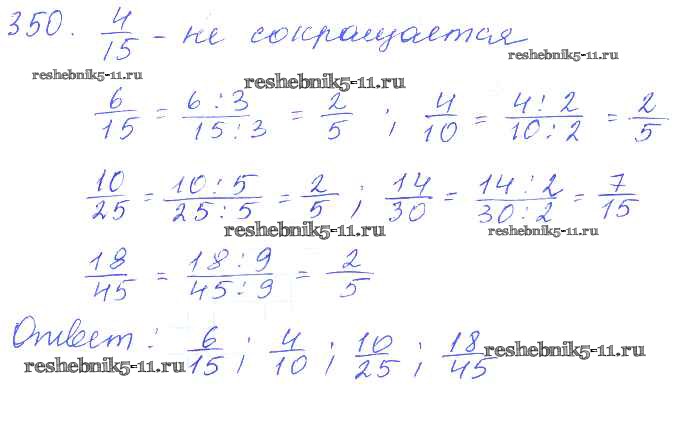 350. 4/15 - не сокращается
reshebnik5-11.ru reshebnik5-11.ru reshebnik5-11.ru
6/15 = 6:3/15:3 = 2/5 ; 4/10 = 4:2/10:2 = 2/5
10/25 = 10:5/25:5 = 2/5 ; 14/30 = 14:2/30:2 = 7/15
reshebnik5-11.ru reshebnik5-11.ru
18/45 = 18:9/45:9 = 2/5
Ответ: 6/15 ; 4/10 ; 10/25 ; 18/45
reshebnik5-11.ru reshebnik5-11.ru